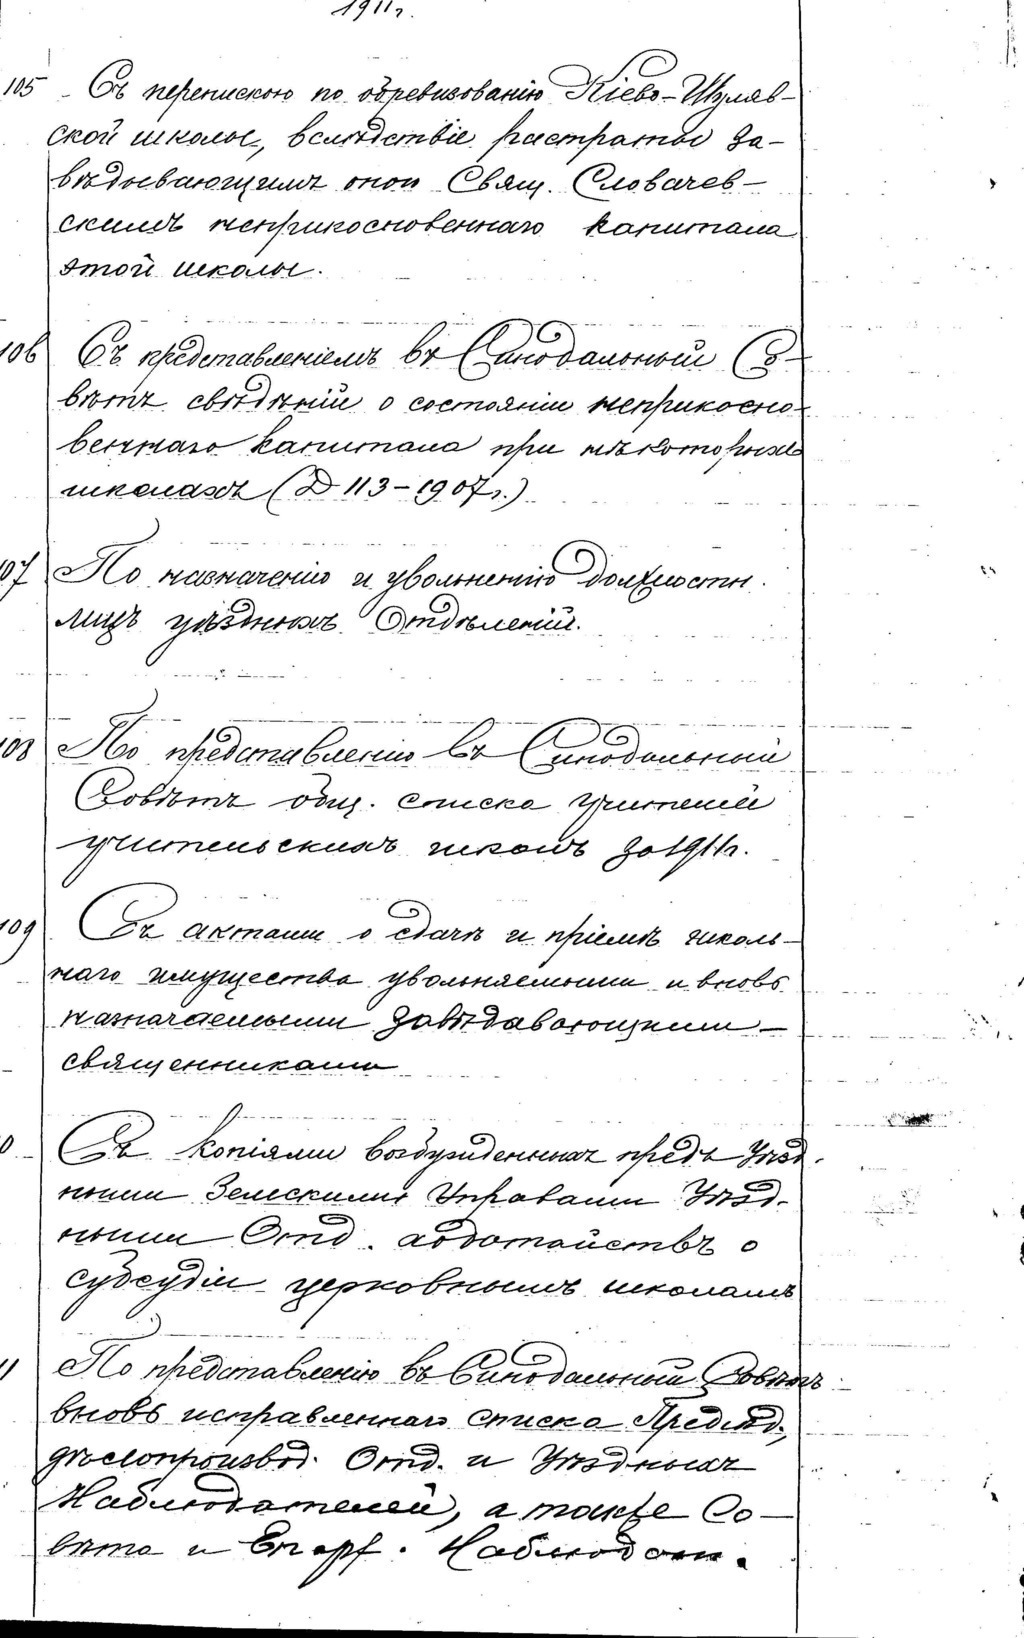 1911г.
105 Съ перепискою по обревизованію Кіево-Шуляв-
ской школы, вслѣдствіе растраты за-
вѣдывающимъ оной Свящ. Словачев-
скимъ неприкосновеннаго капитала
этой школы.
106 Съ представленіемъ въ Синодальный Со-
вѣтъ свѣдѣній о состояніи неприкосно-
веннаго капитала при нѣкоторыхъ
школахъ (Д 113-1907г.)
107 По назначенію и увольненію должностн.
лицъ уѣздныхъ Отдѣленій.
108 По представленію въ Синодальный
Совѣтъ общ. списка учителей
учительскихъ школъ за 1911г.
109 Съ актами о сдачѣ и пріемѣ школь-
наго имущества увольняемыми и вновь
назначаемыми завѣдавающими
священниками
0 Съ копіями возбужденныхъ предъ Уѣзд.
ными Земскими Управами Уѣзд-
ными Отд. ходотайствъ о
субсудіи церковнымъ школамъ
11 По представленію въ Синодальный Совѣтъ
вновь исправленнаго списка Предсѣд.,
дѣлопроизвод. Отд. и Уѣздныхъ
Наблюдателей, а также Со-
вѣта и Епарх. Наблюдат.